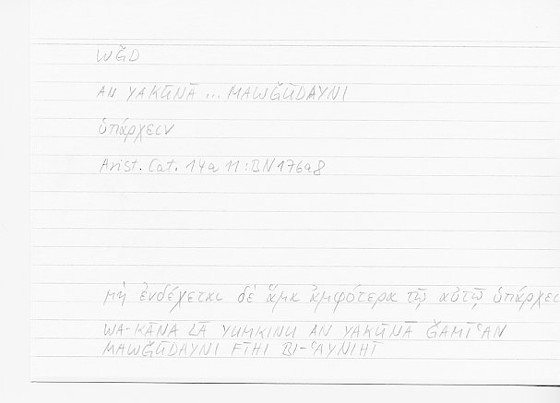 WǦD
AN YAKŪNĀ ... MAWǦŪDAYNI
ὑπάρχειν
Arist. Cat. 14a 11 : BN 176a8
μὴ ἐνδέχεται δὲ ἅμα ἀμφότερα τῷ αὐτῷ ὑπάρχει
WA-KĀNA LĀ YUMKINU AN YAKŪNĀ ǦAMĪʿAN
MAWǦŪDAYNI FĪHI BI-ʿAYNIHĪ